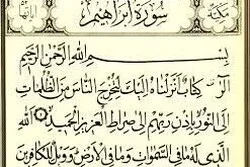 سُورَةُ إِبْرَاهِيم
بِسْمِ اللَّهِ الرَّحْمَٰنِ الرَّحِيمِ
الٓر كِتَابٌ أَنْزَلْنَاهُ إِلَيْكَ لِتُخْرِجَ النَّاسَ مِنَ الظُّلُمَاتِ
إِلَى النُّورِ بِإِذْنِ رَبِّهِمْ إِلَى صِرَاطِ الْعَزِيزِ الْحَمِيدِ ۝ اللَّهِ
الَّذِي لَهُ مَا فِي السَّمَوَاتِ وَمَا فِي الْأَرْضِ وَوَيْلٌ لِلْكَافِرِينَ